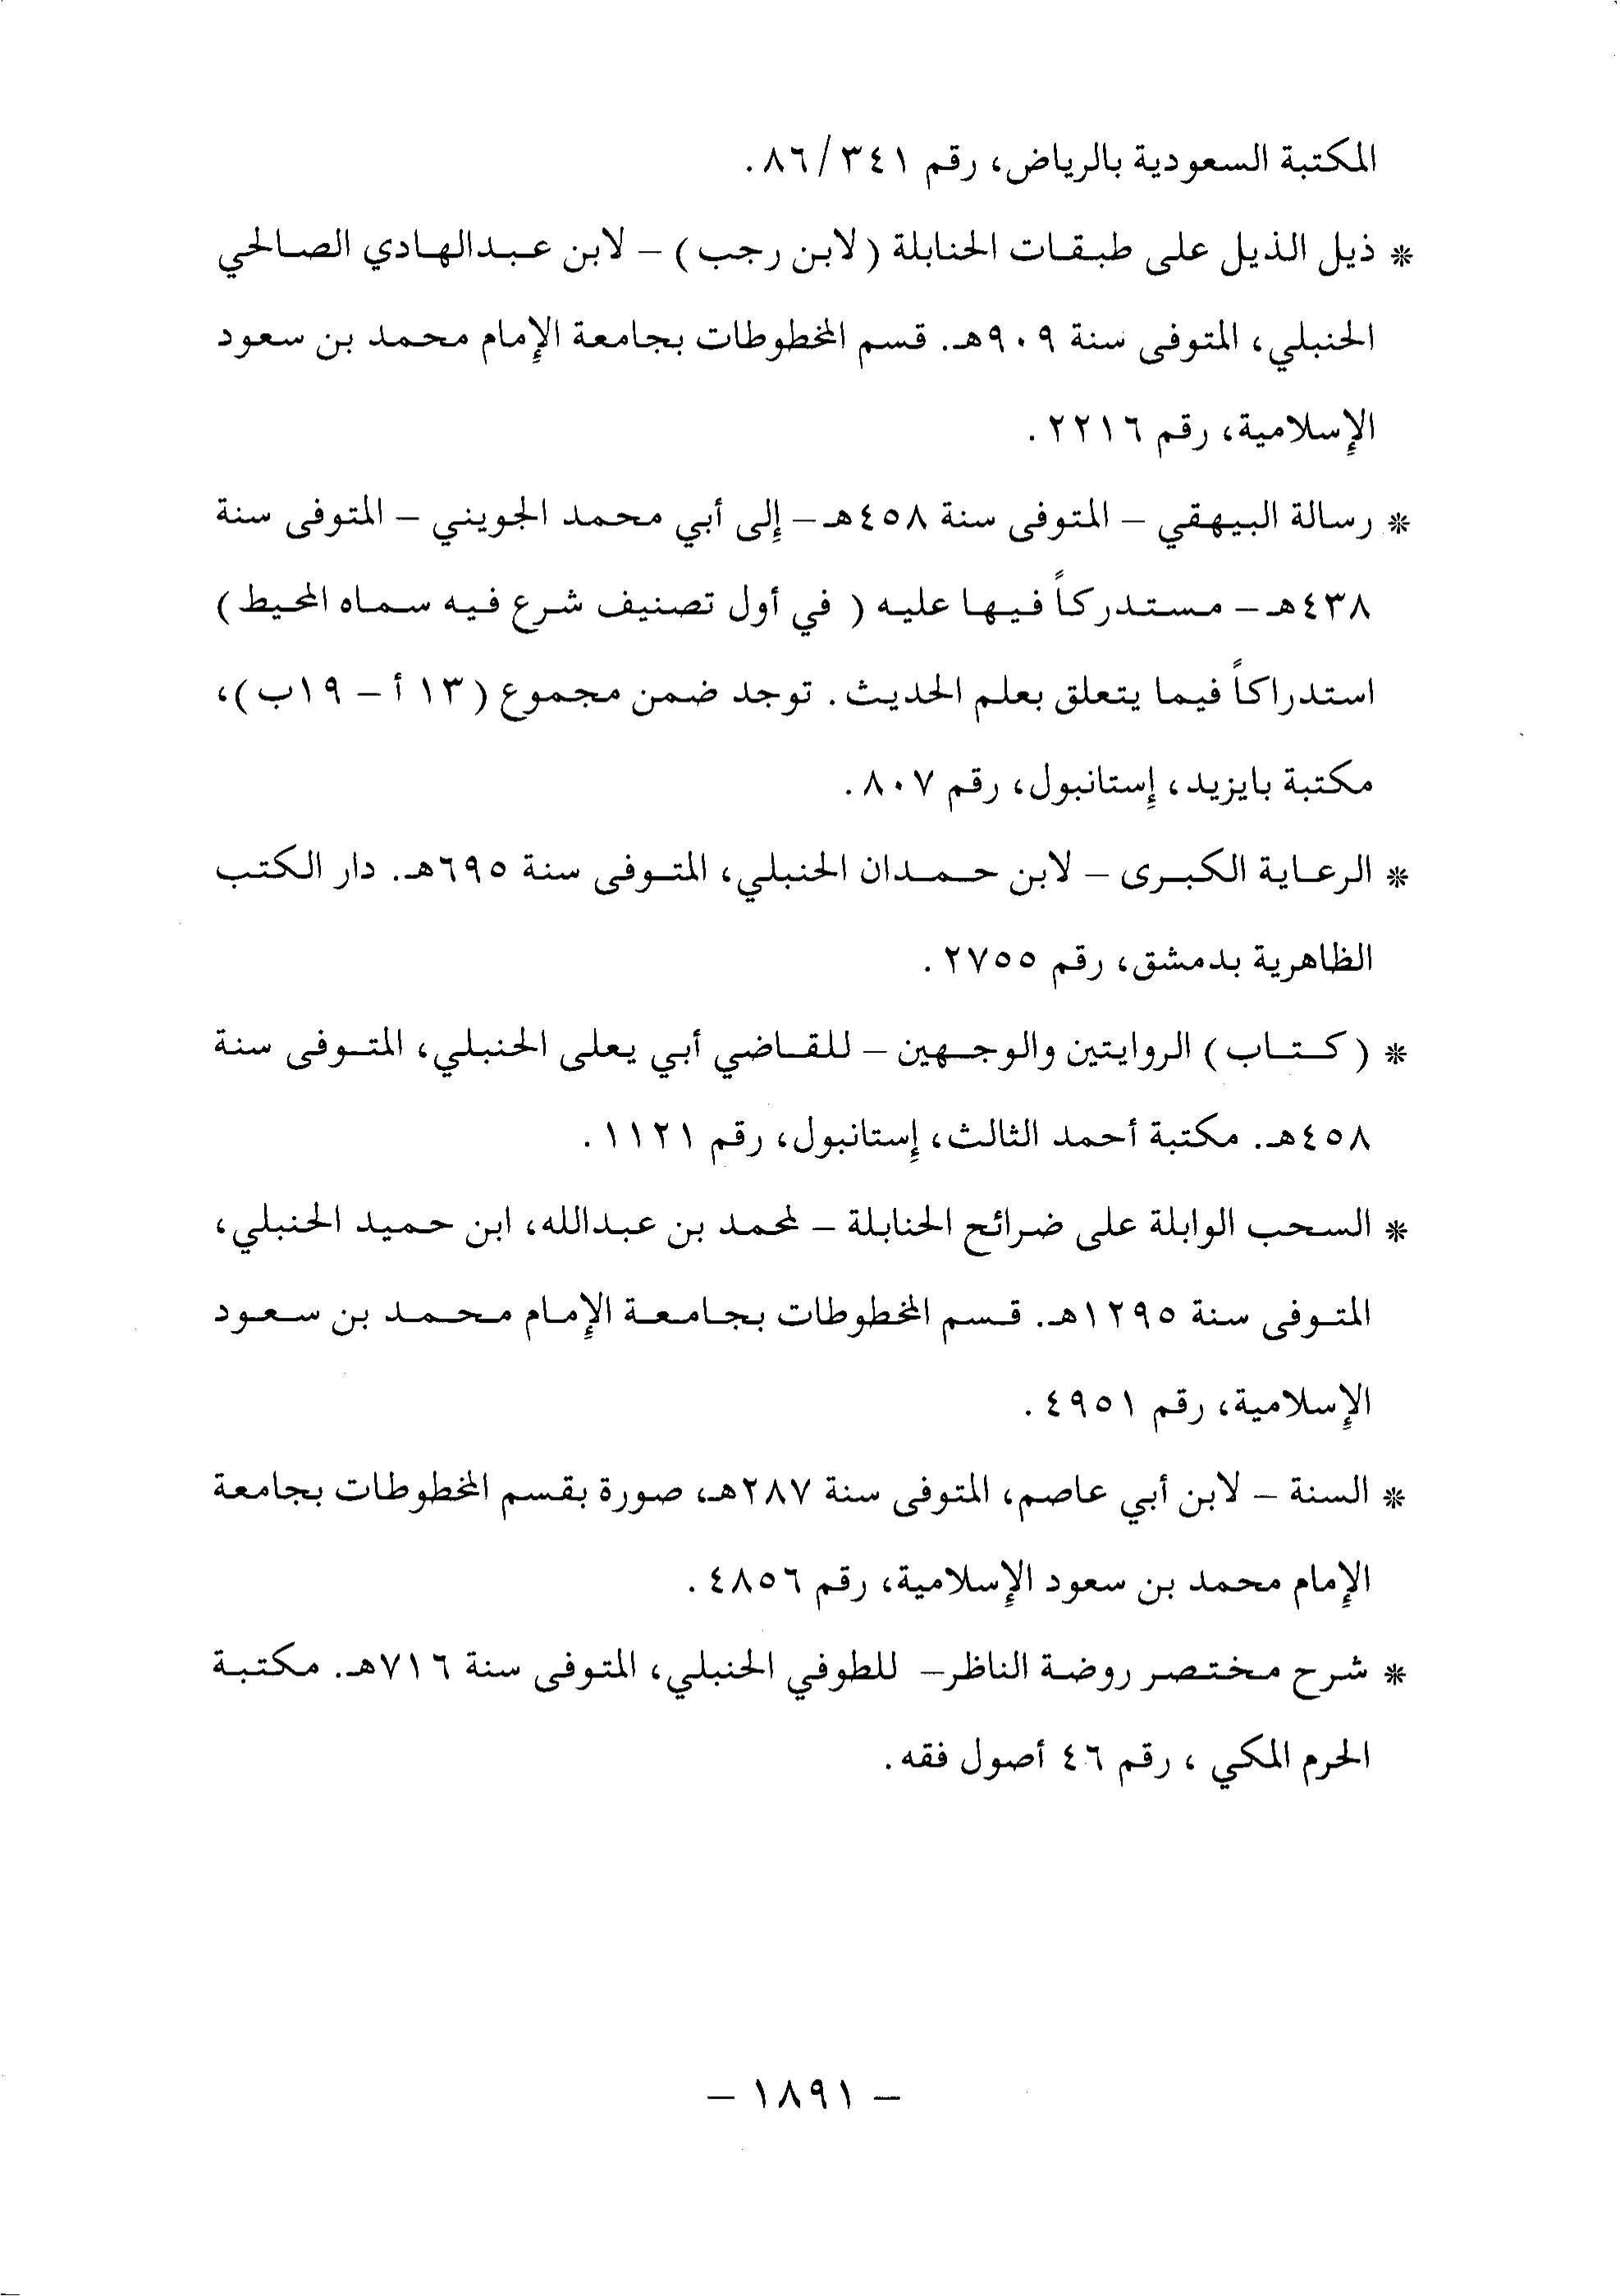 المكتبة السعودية بالرياض، رقم ٨٦/٣٤١.
* ذيل الذيل على طبقات الحنابلة (لابن رجب) – لابن عبدالهادي الصالحي
الحنبلي، المتوفى سنة ٩٠٩هـ. قسم المخطوطات بجامعة الإمام محمد بن سعود
الإسلامية، رقم ٢٢١٦.
* رسالة البيهقي – المتوفى سنة ٤٥٨هـ – إلى أبي محمد الجويني – المتوفى سنة
٤٣٨هـ – مستدركاً فيها عليه ( في أول تصنيف شرع فيه سماه المحيط )
استدراكاً فيما يتعلق بعلم الحديث. توجد ضمن مجموع (١٣ أ – ١٩ب)،
مكتبة بايزيد، إستانبول، رقم ٨٠٧.
* الرعاية الكبرى – لابن حمدان الحنبلي، المتوفى سنة ٦٩٥هـ. دار الكتب
الظاهرية بدمشق، رقم ٢٧٥٥.
* (كتاب) الروايتين والوجهين – للقاضي أبي يعلى الحنبلي، المتوفى سنة
٤٥٨هـ. مكتبة أحمد الثالث، إستانبول، رقم ١١٢١.
* السحب الوابلة على ضرائح الحنابلة – لمحمد بن عبدالله، ابن حميد الحنبلي،
المتوفى سنة ١٢٩٥هـ. قسم المخطوطات بجامعة الإمام محمد بن سعود
الإسلامية، رقم ٤٩٥١.
* السنة – لابن أبي عاصم، المتوفى سنة ٢٨٧هـ، صورة بقسم المخطوطات بجامعة
الإمام محمد بن سعود الإسلامية، رقم ٤٨٥٦.
* شرح مختصر روضة الناظر– للطوفي الحنبلي، المتوفى سنة ٧١٦هـ. مكتبة
الحرم المكي ، رقم ٤٦ أصول فقه.
– ١٨٩١ –